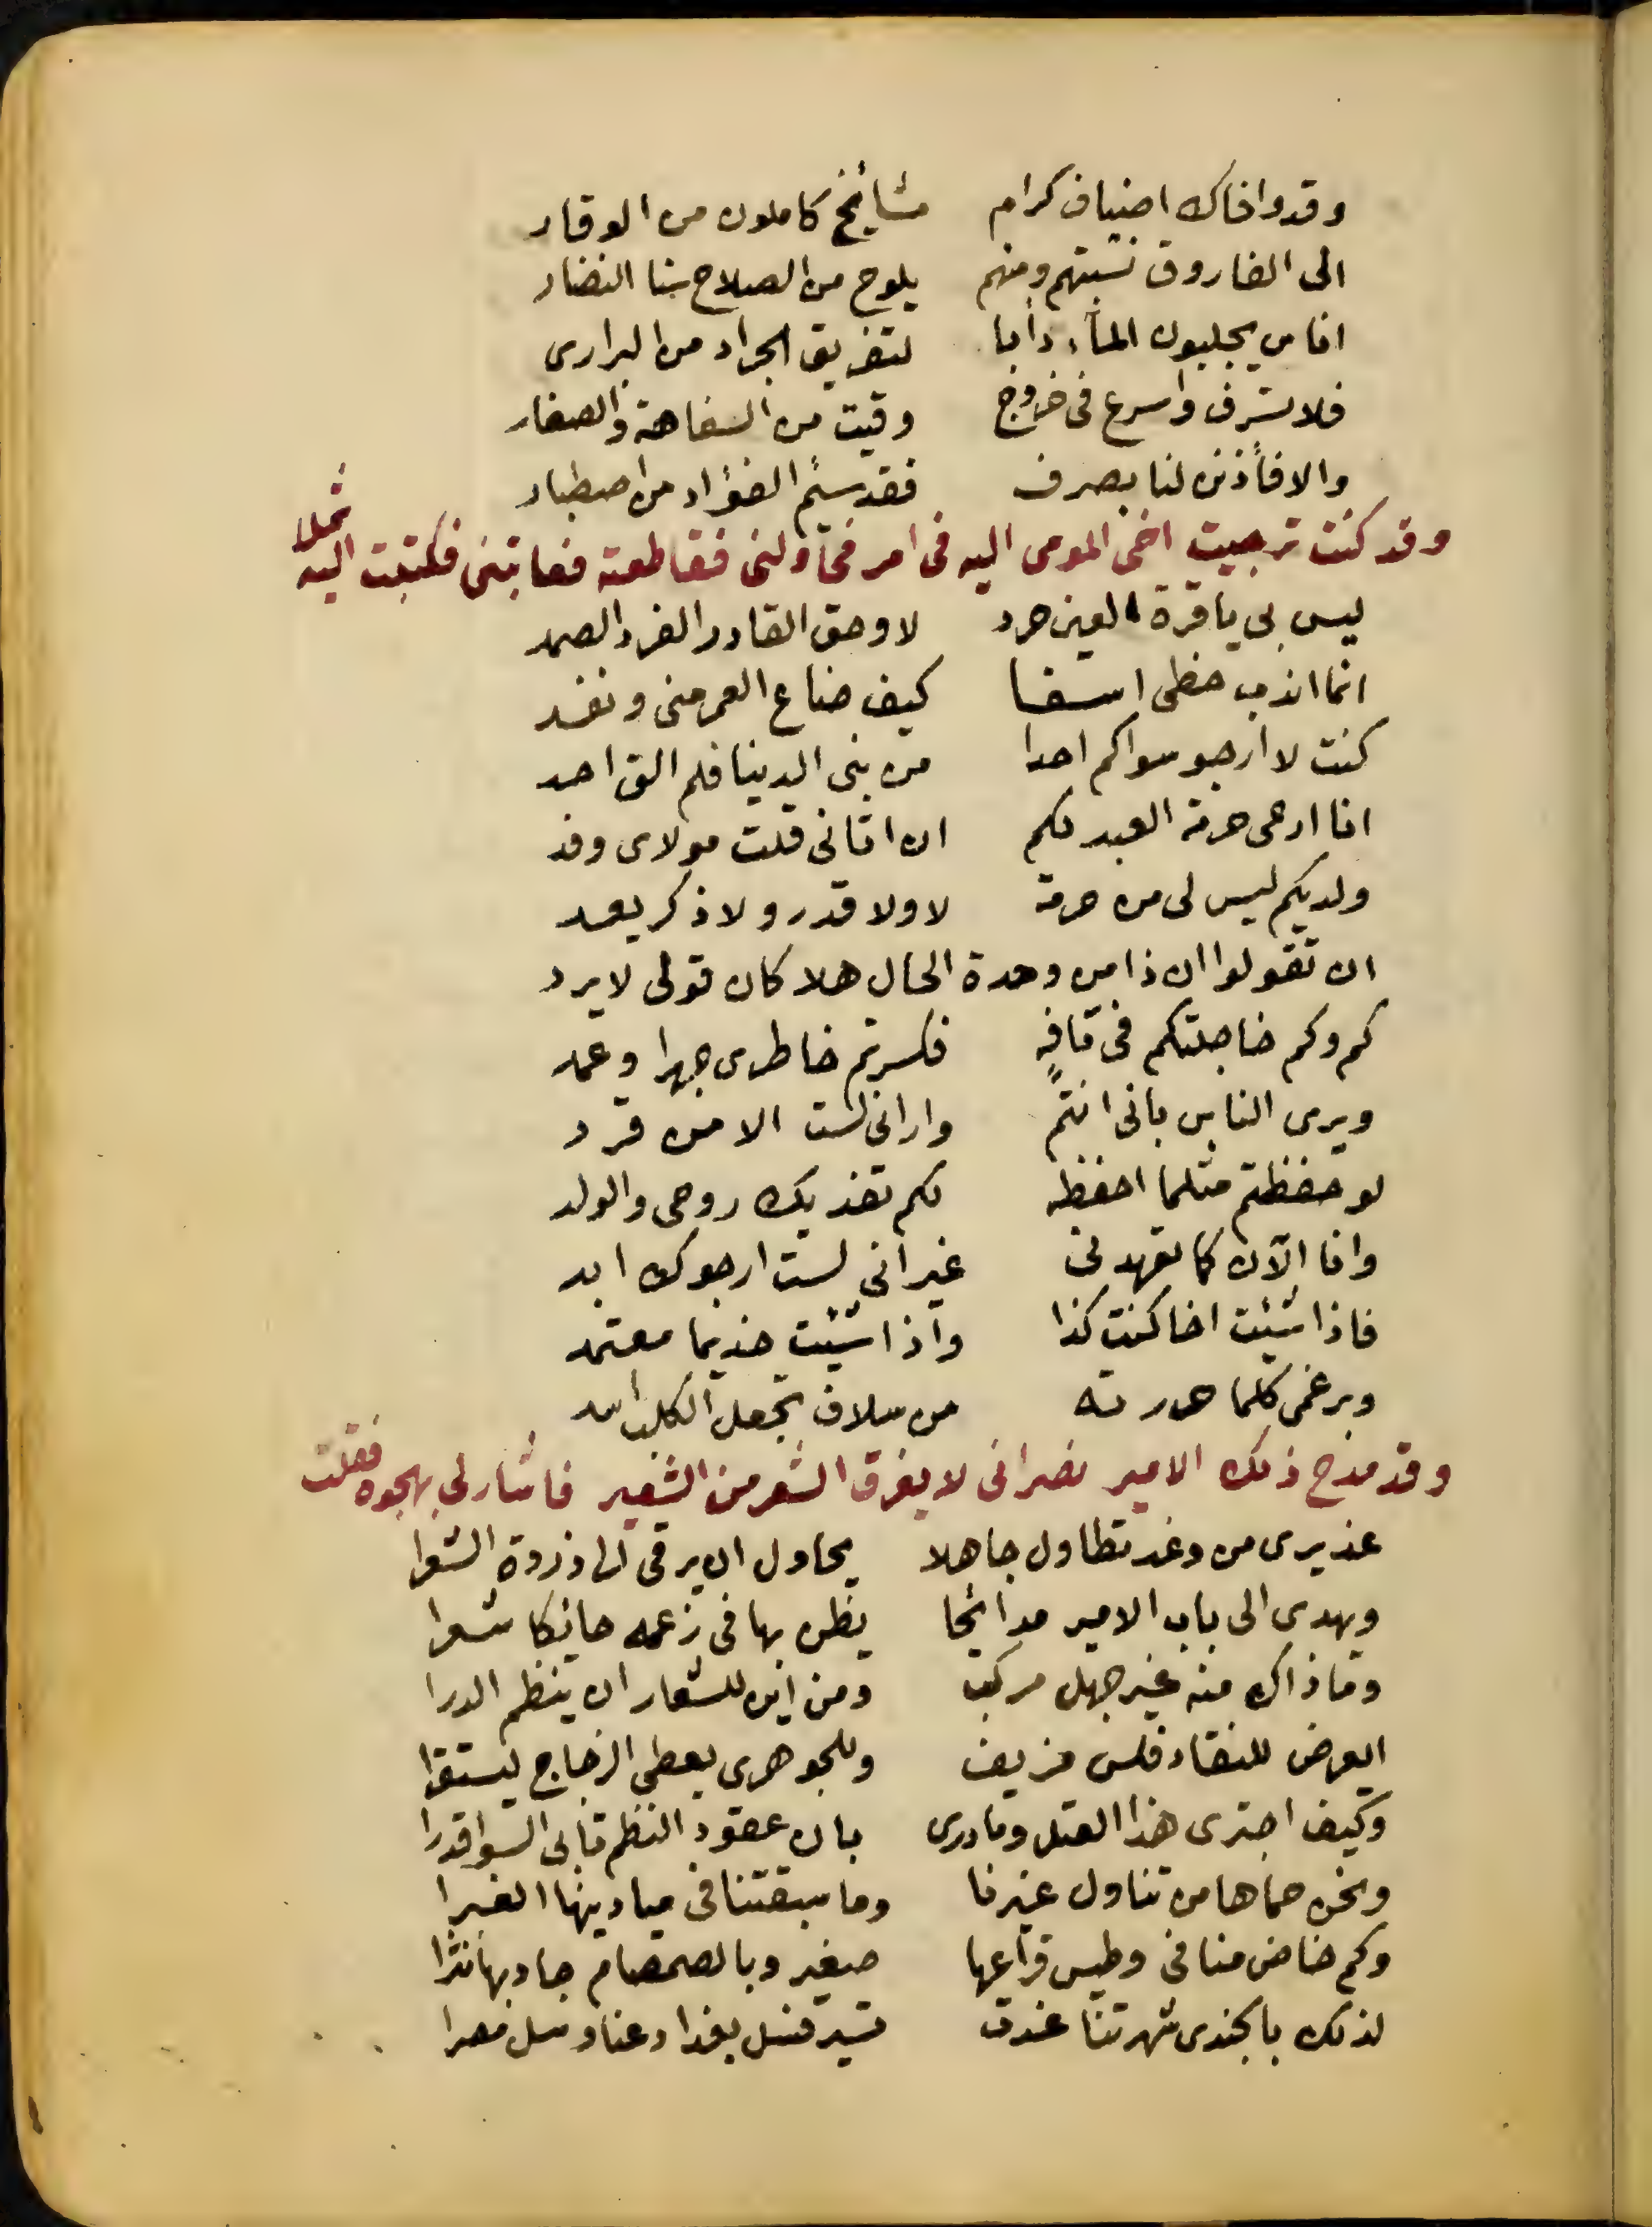 وقد وافاك اضياف كرام مشأيخ كاملون من الوقار
الى الفاروق نسبتهم ومنهم يلوح من الصلاح سنا النضار
اناس يجلبون المآء دأبا لتفريق الجراد من البرارى
فلا تسرف واسرع فى خروج وقيت من السفاهة والصغار
والا فأذنن لنا بصرف فقد سئم الفؤاد من اصطبار
وقد كنت ترجيت اخى المومى اليه فى امر فحاولنى فقاطعته فعاتبنى فكتبت اليه مثملا
ليس بى يا قرة العين حرد لا وحق القادر الفرد الصمد
انما اندب حظى اسفا كيف ضاع العمر منى ونفد
كنت لا ارجو سواكم احدا من بنى الدينا فلم الق احد
انا ارعى حرمة العبد لكم ان اتانى قلت مولاى وفد
ولديكم ليس لى من حرمة لا ولا قدر ولا ذكر يعد
ان تقولوا ان ذا من وحدة الحال هلا كان قولى لا يرد
كم وكم خاجلتكم فى تافهٍ فكسرتم خاطرى جهرا وعمد
ويرى الناس بانى انتم وارانى لست الا من قرد
لو حفظتم مثلما احفظه لكم تفديك روحى والولد
وانا الآن كما تعهدنى غير انى لست ارجوك ابد
فاذا شئت اخا كنت كذا واذا شئت خديما معتمد
وبرغمى كلما حررته من سلاف تجعل الكلب اسد
وقد مدح ذلك الامير نصرانى لا يفرق الشعر من الشعير فاشار لى بهجوه فقلت
عذيرى من وغد تطاول جاهلا يحاول ان يرقى الى ذروة الشعرا
ويهدى الى باب الامير مدائحا يظن بها فى زعمه حائكا شعرا
وما ذاك منه غير جهل مركب ومن اين للشعار ان ينظم الدرا
ايعرض للنقاد فلس مزيف وللجوهرى يعطى الزجاج ليستقرا
وكيف اجترى هذا العتل وما درى بان عقود النظم تأبى السوا قدرا
ونحن حماها من تناول غيرنا وما سبقتنا فى ميادينها الغبرا
وكم خاض منا فى وطيس قراعها صغير وبالصمصام جاد بها نثرا
لذلك بالجندى شهرتنا غدت تسير فسل بغداد عنا وسل مصرا